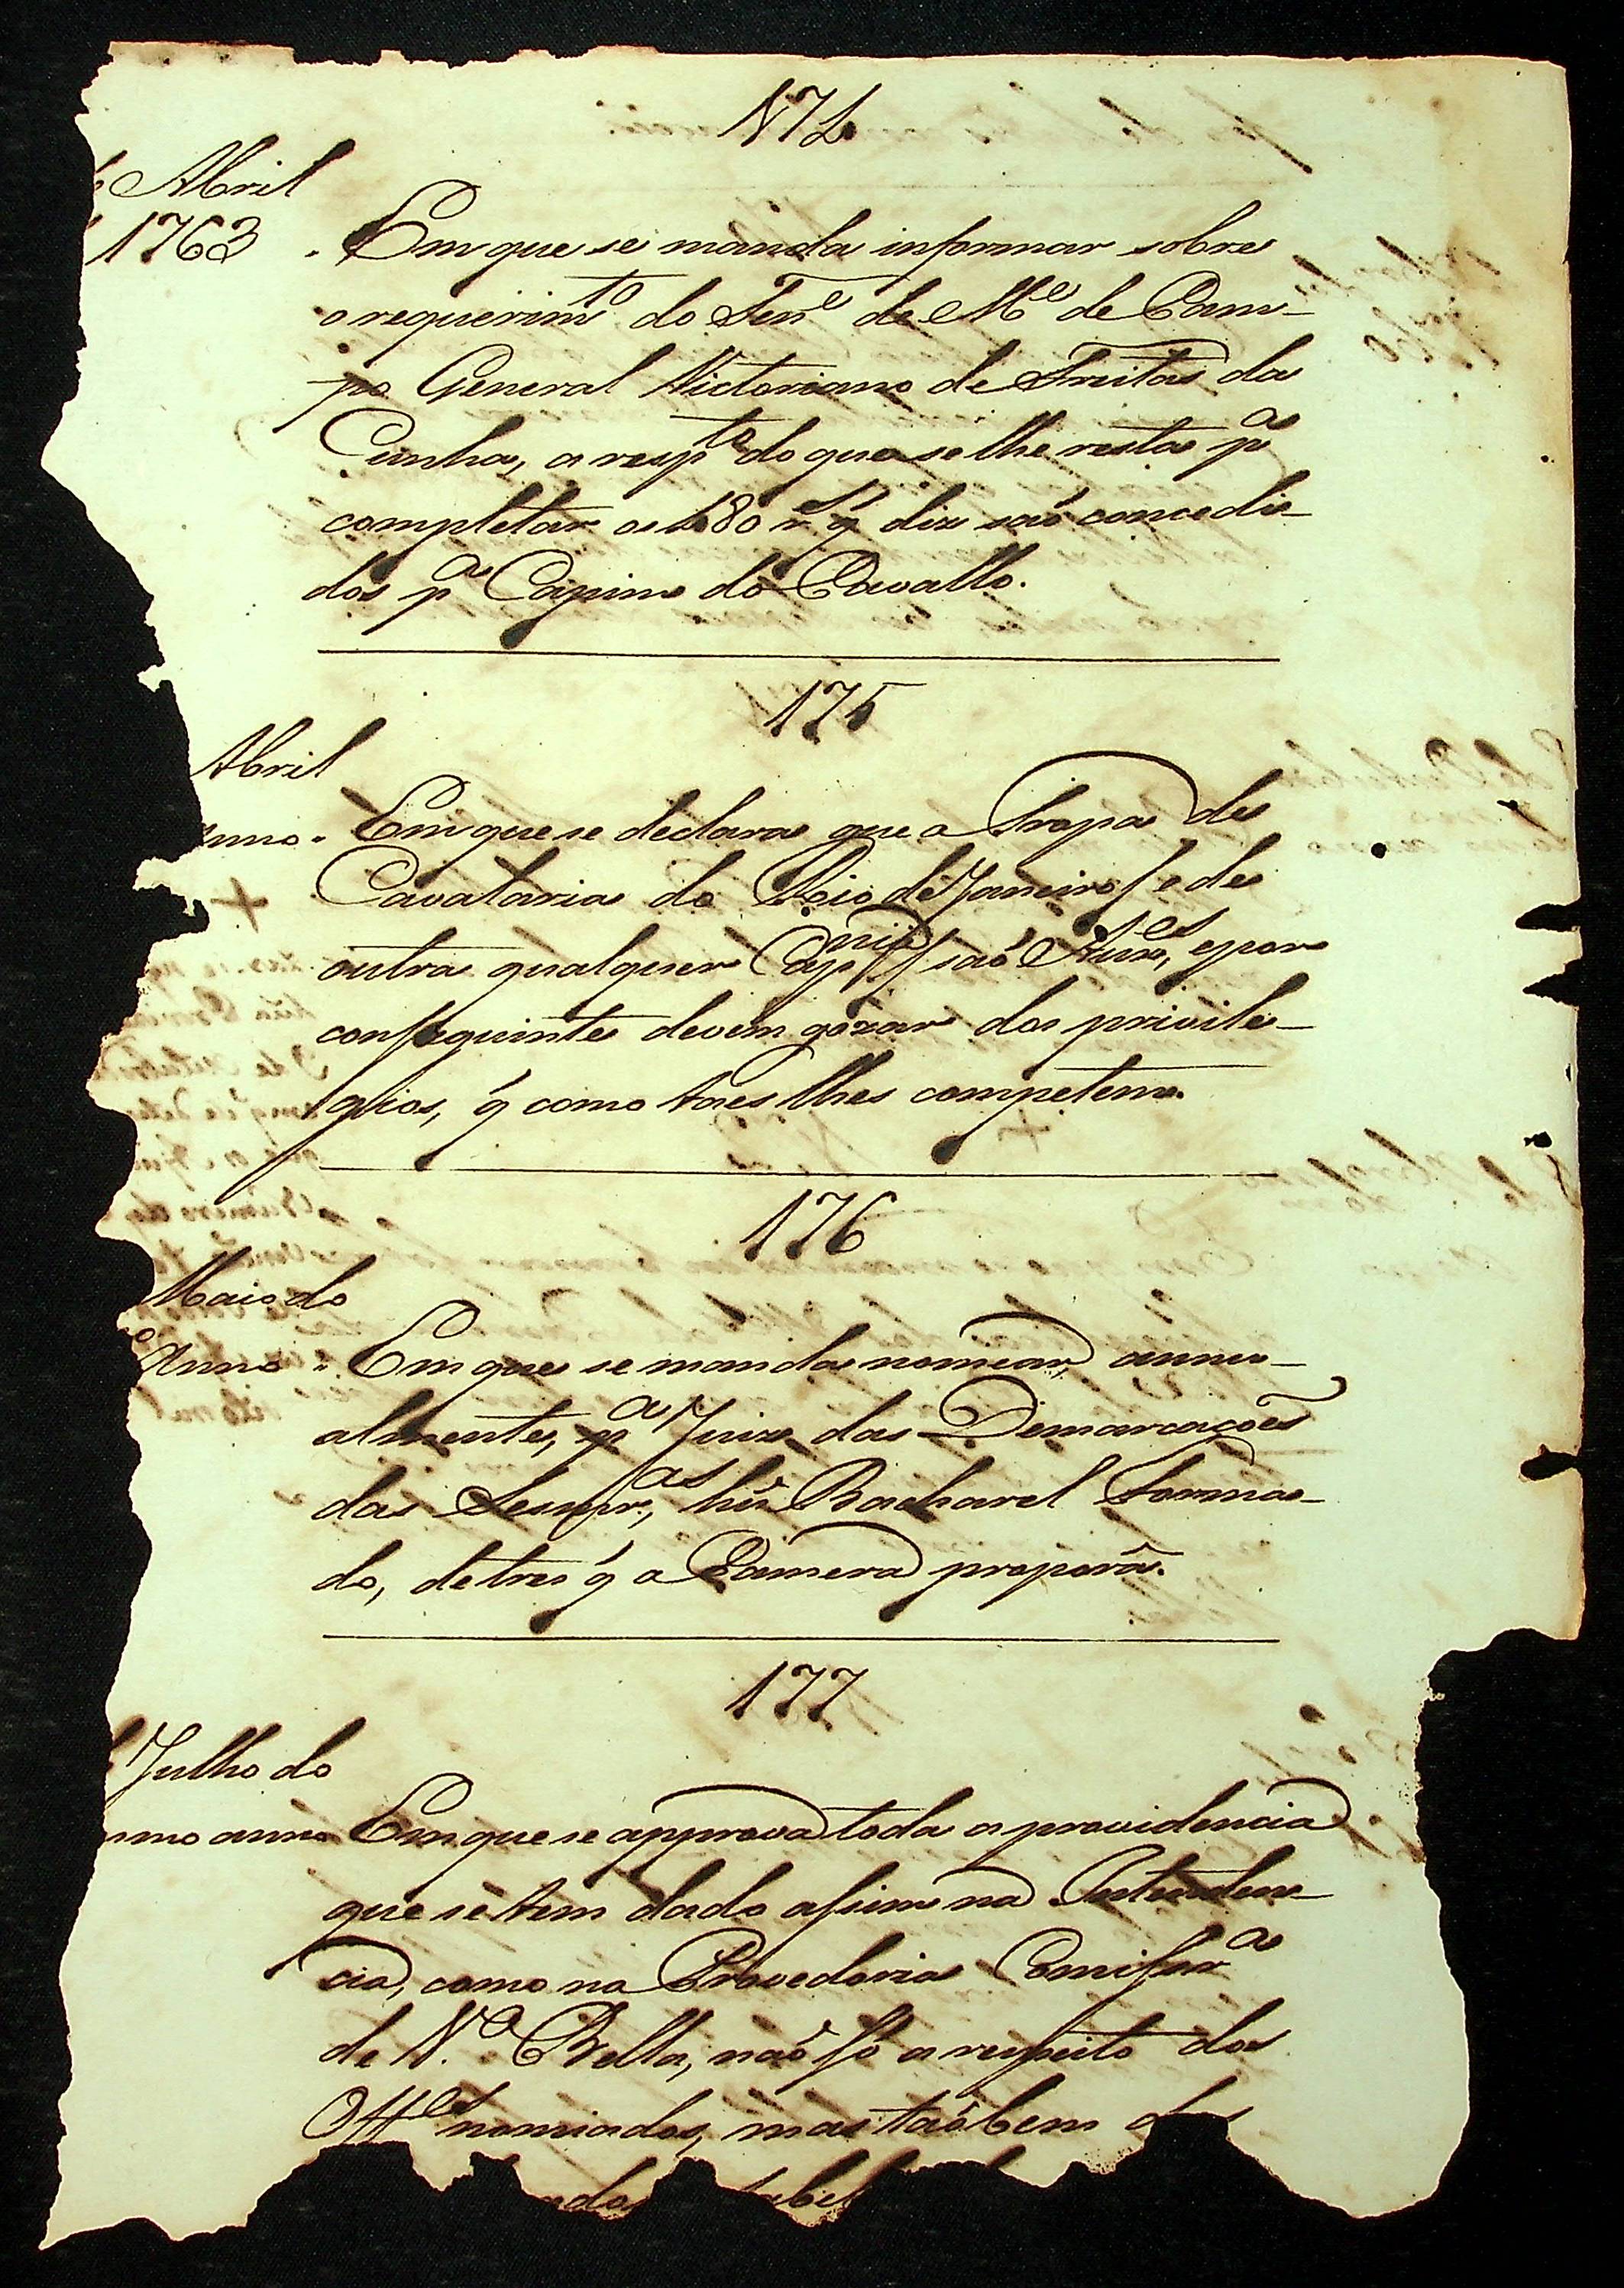 174
Abril
1763
Em que se manda informar sobre
o requerim.to do Ten.e de M.e de Cam-
po General Victoriano de Freitas da
Cunha, a resp.to do que se lhe resta p.a
completar os 480 r.s q́ diz saõ concedi-
dos p.a Capim do Cavallo.
175
Abril
anno
Em que se declara que a Tropa de
Cavalaria do Rio de Janeiro / e de
outra qualquer Cap.nia / saõ Aux.es, e por
conseguinte devem gozar dos privile-
gios, q́ como taes lhes competem.
176
Maio do
anno
Em que se manda nomear, annu-
almente, p.a Juiz das Demarcações
das Sesmr.as, hũ Bacharel Forma-
do, de tres q́ a Camera proporâ.
177
Julho do
mo anno
Em que se approva toda a providencia
que se tem dado assim na Intenden-
cia, como na Provedoria Comissar.a
de V.a Bella, naõ só a respeito dos
Off.es nomiados, mas taõbem dos